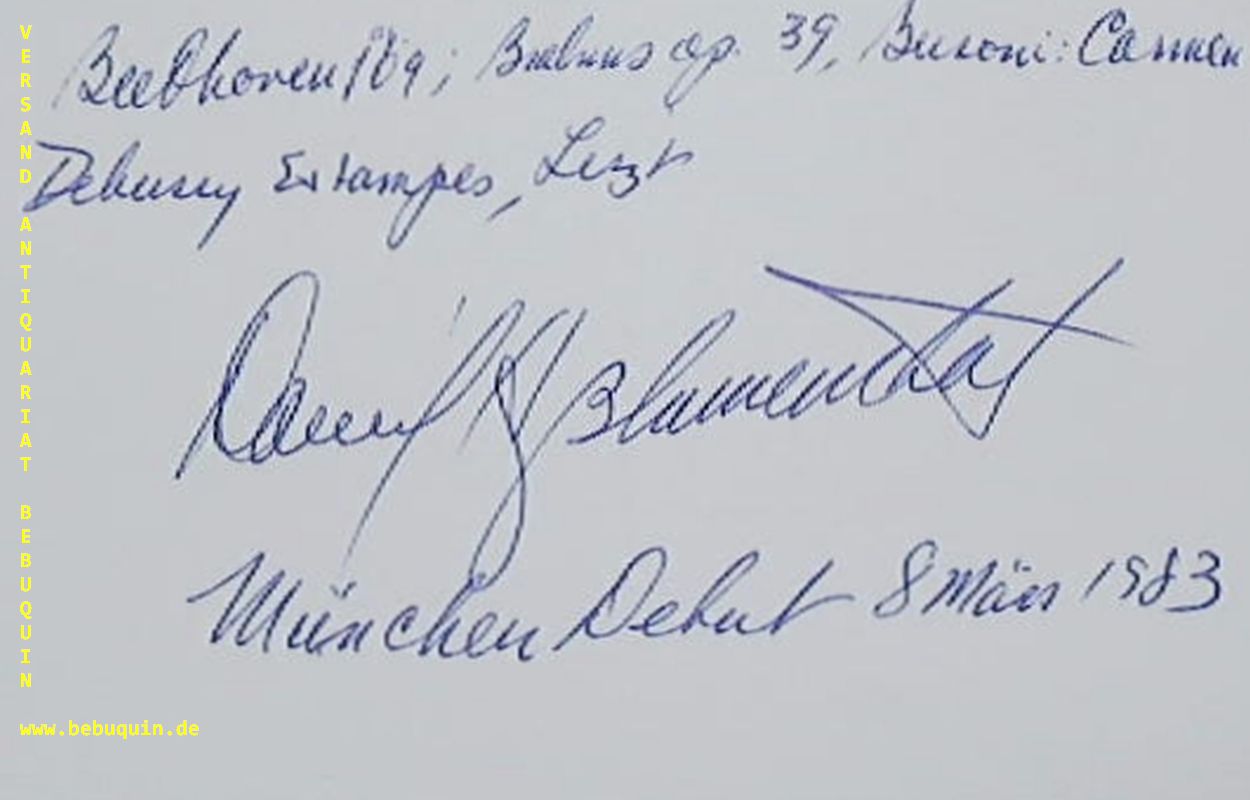 Beethoven 109; Brahms op. 39, Busoni: Carmen
Debussy Estampes, Liszt
Daniel Blumenthal
München Debut 8 März 1983
VERSAND ANTIQUARIAT BEBUQUIN
www.bebuquin.de